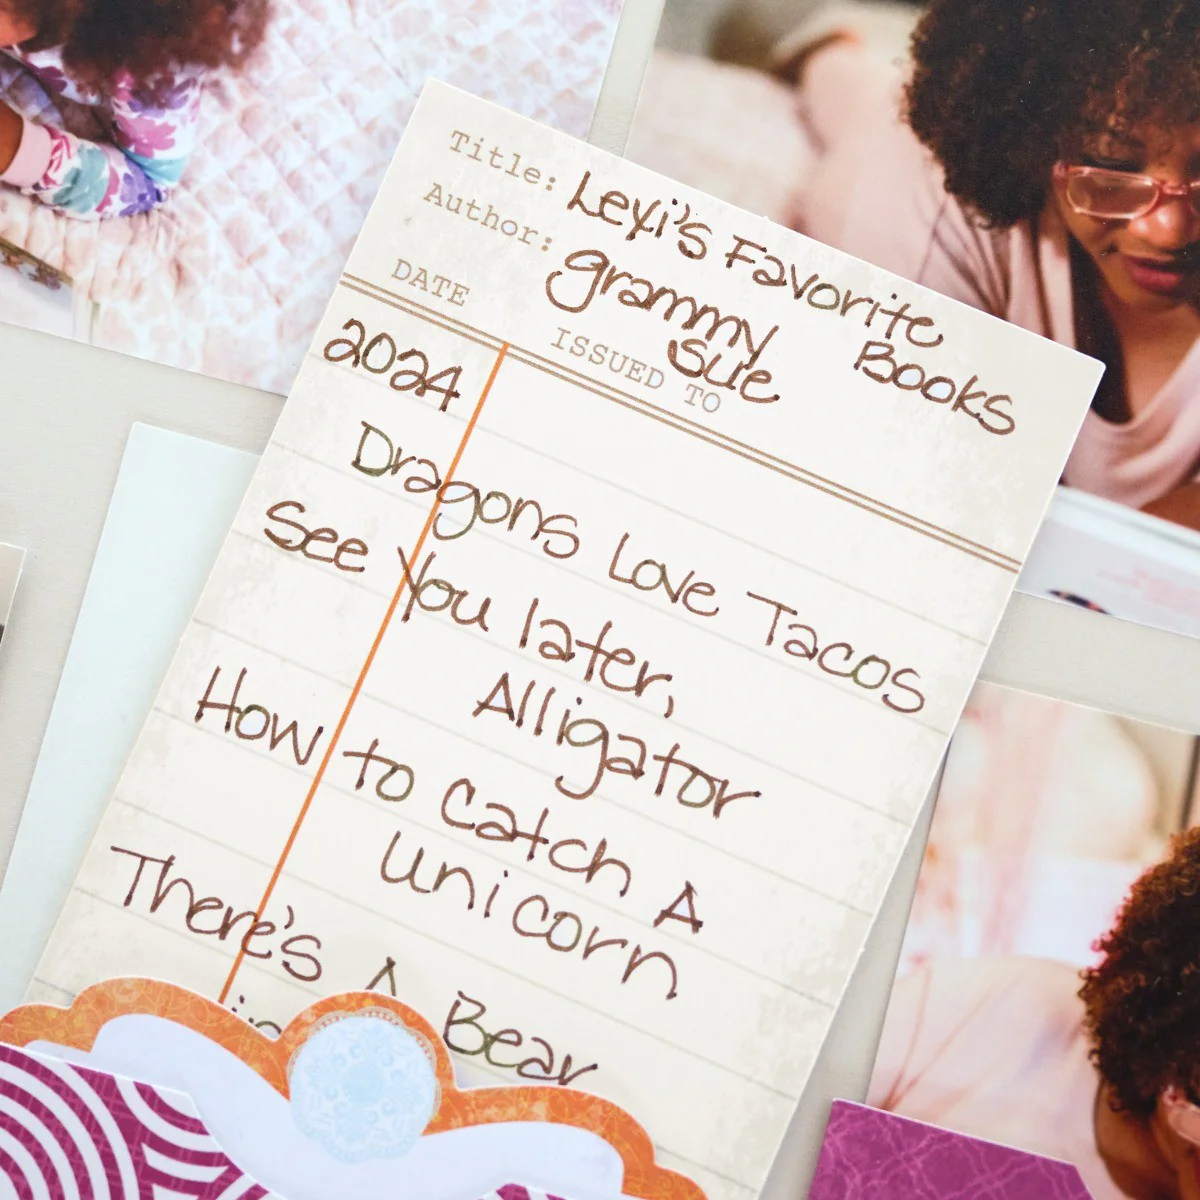 Title: Lexi's Favorite
Books
Author: grammy
Sue
DATE
ISSUED TO
2024
Dragons Love Tacos
See You later,
Alligator
How to Catch A
unicorn
There's A Bear